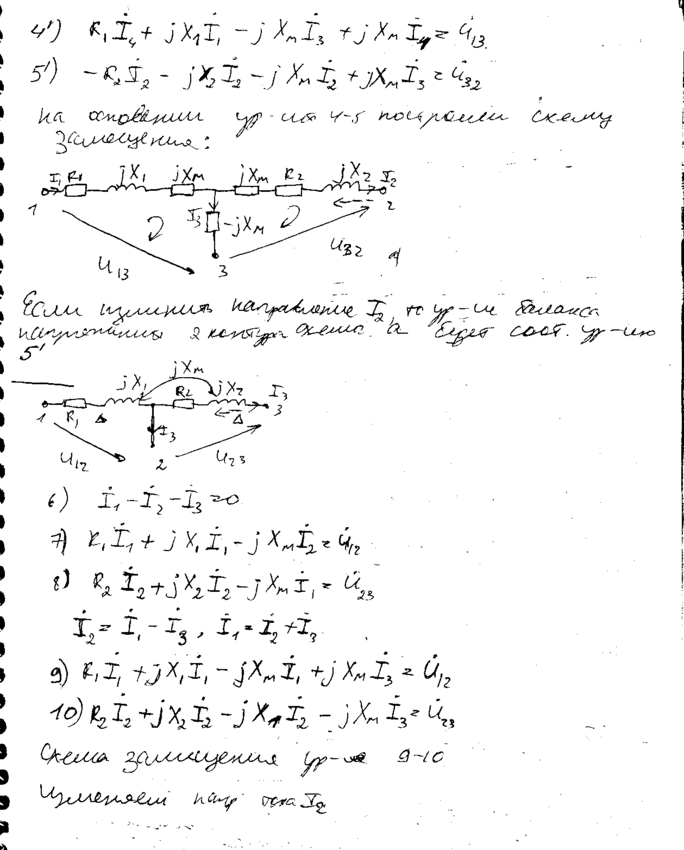 4') R₁İ₄ + jX₁İ₁ - jXмİ₃ + jXмİ₄ = U̇₁₃.
5') -R₂İ₂ - jX₂İ₂ - jXмİ₂ + jXмİ₃ = U̇₃₂
на основании ур-ий 4-5 построим схему
замещения:
I₁ R₁ jX₁ jXм jXм R₂ jX₂ I₂
1 I₃ -jXм 2
U₁₃ 3 U₃₂ а)
Если изменить направление I₂, то ур-ие баланса
напряжения 2 контура схема а будет соот. ур-ию
5'
jXм
jX₁ R₂ jX₂ I₃
1 R₁ Δ I₃ Δ 3
U₁₂ 2 U₂₃
6) İ₁ - İ₂ - İ₃ = 0
7) R₁İ₁ + jX₁İ₁ - jXмİ₂ = U̇₁₂
8) R₂İ₂ + jX₂İ₂ - jXмİ₁ = U̇₂₃
İ₂ = İ₁ - İ₃, İ₁ = İ₂ + İ₃
9) R₁İ₁ + jX₁İ₁ - jXмİ₁ + jXмİ₃ = U̇₁₂
10) R₂İ₂ + jX₂İ₂ - jX İ₂ - jXмİ₃ = U̇₂₃
Схема замещения ур-ие 9-10
Изменяем напр тока I₂